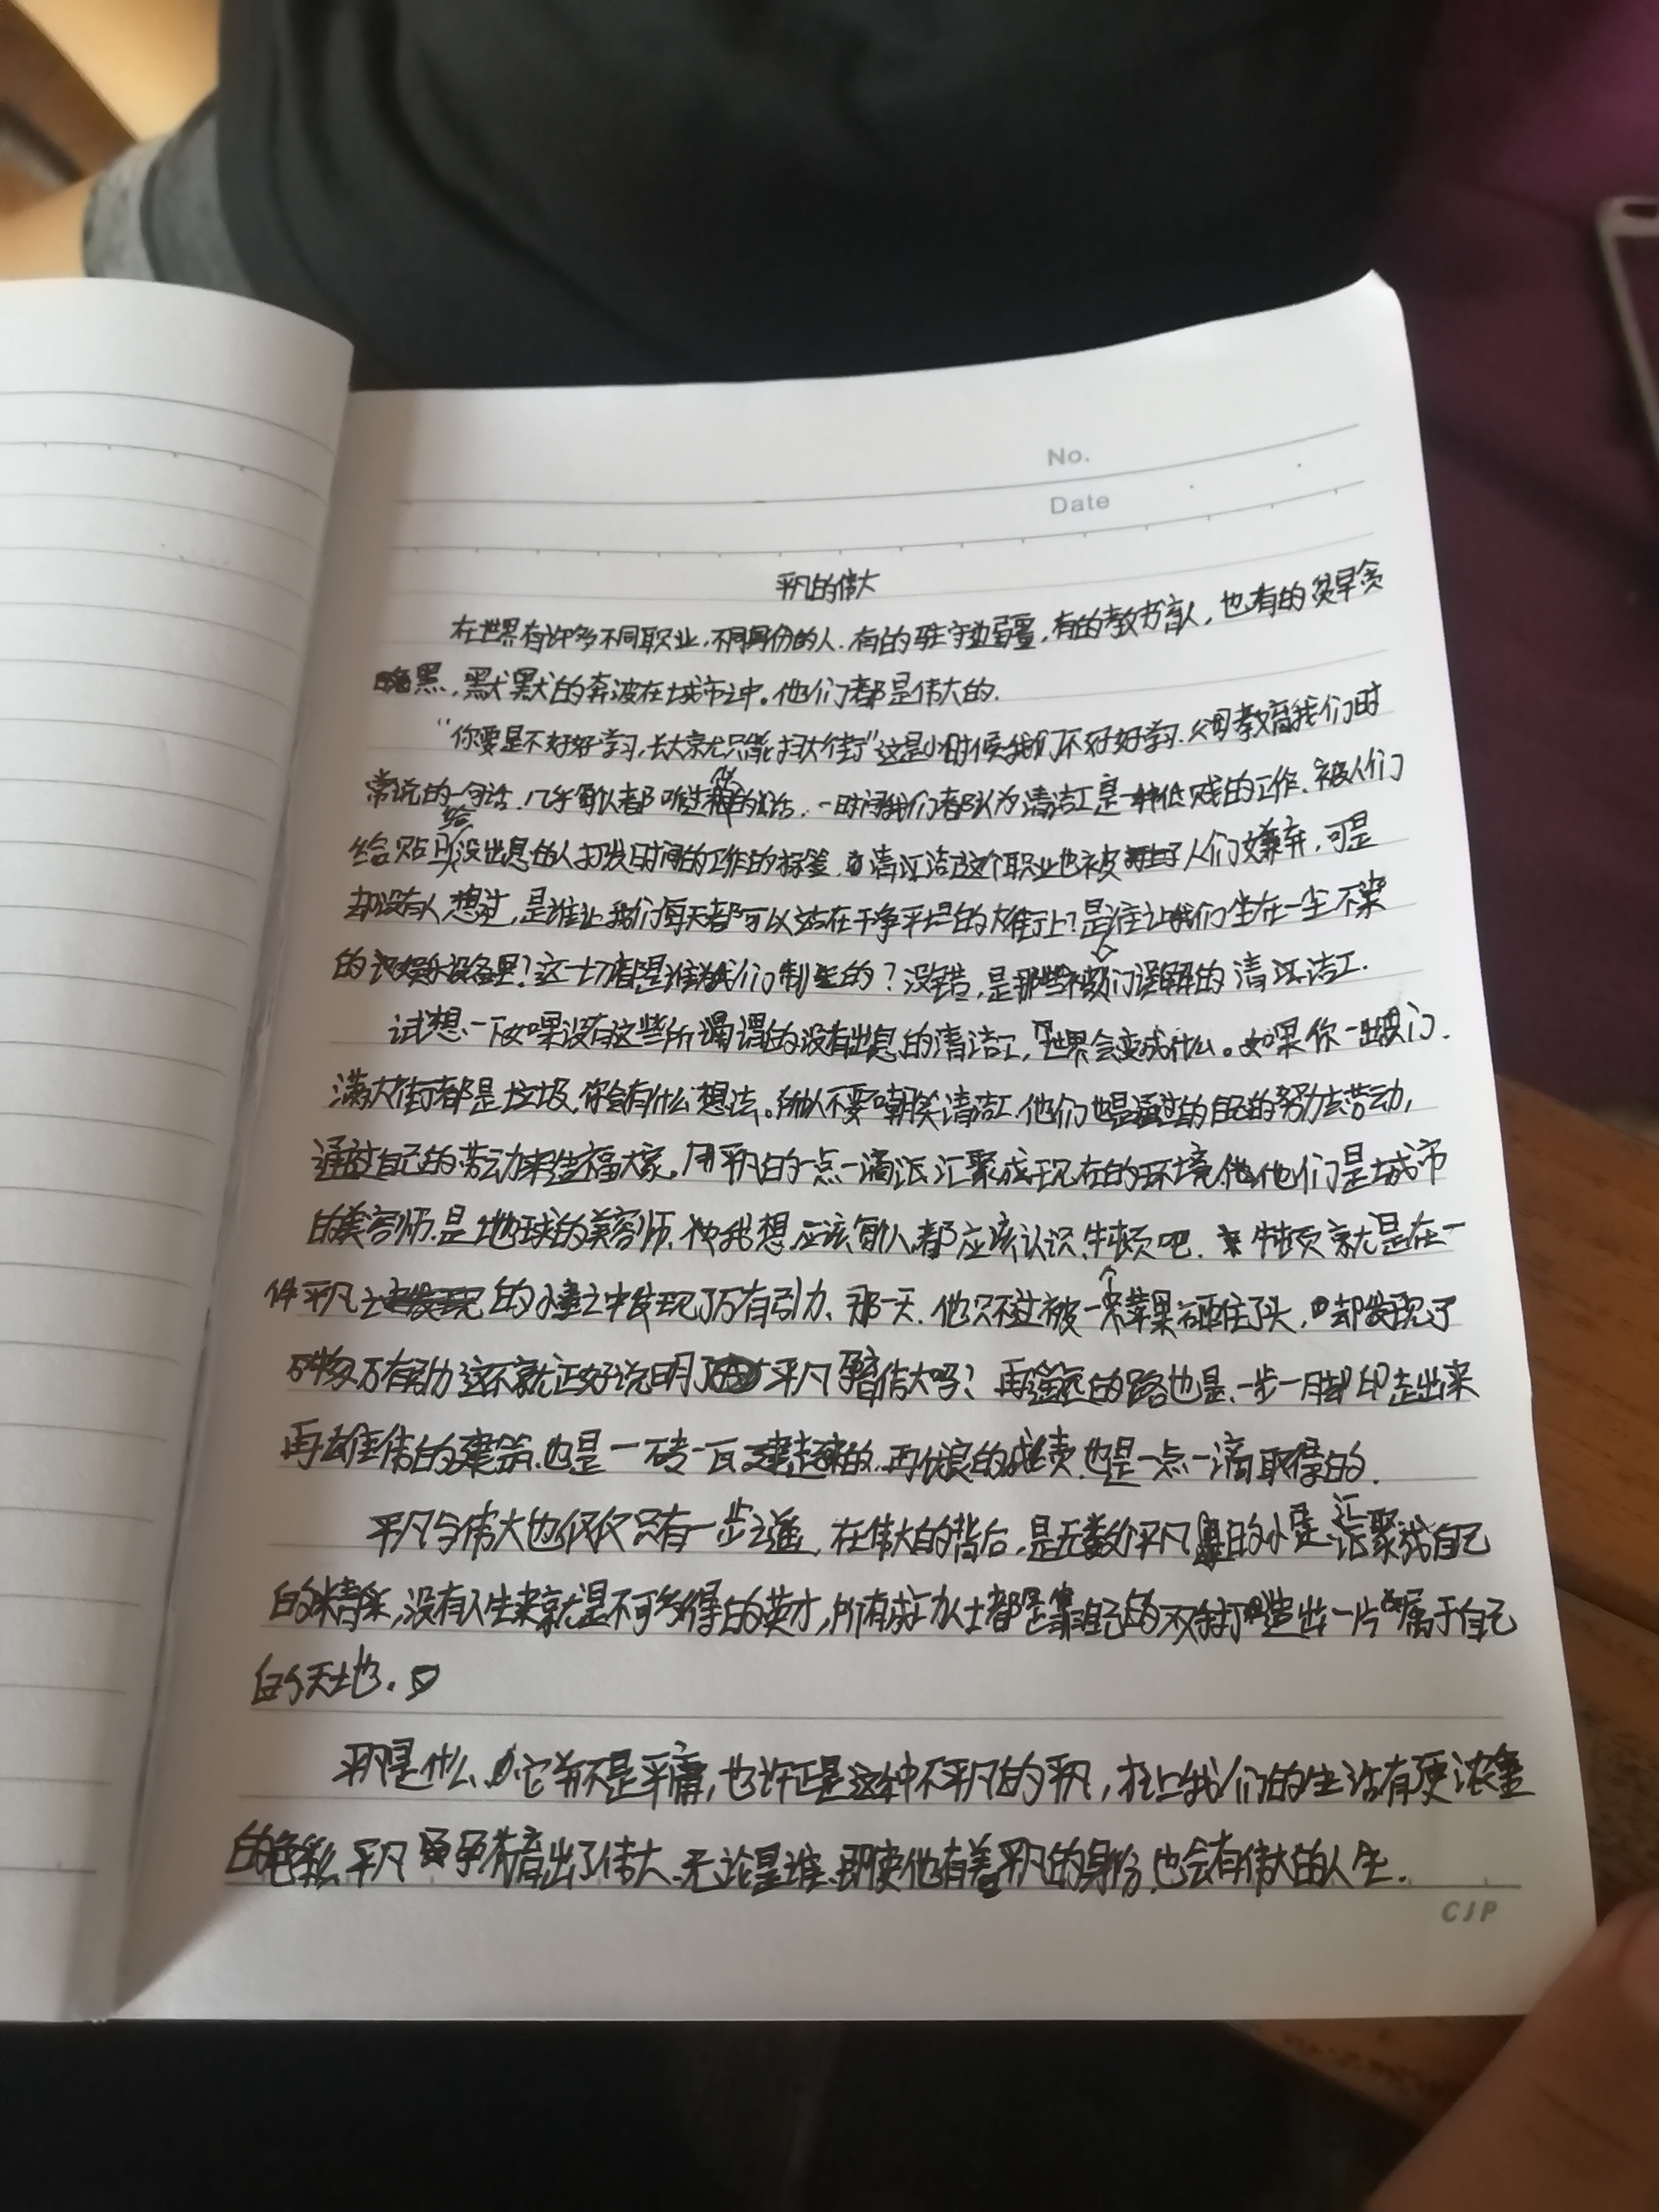 No.
Date
平凡的伟大
在世界有许多不同职业,不同身份的人.有的驻守边疆,有的教书育人,也有的贪早贪
黑,默默的奔波在城市之中。他们都是伟大的.
“你要是不好好学习,长大就只能扫大街”这是小时候我们不好好学习.父母教育我们时
常说的一句话.几乎每人都听过的话.一时间我们都认为清洁工是一种低贱的工作.被人们
给贴没出息的人打发时间的工作的标签.清洁这个职业也被人们嫌弃,可是
却没有人想过,是谁让我们每天都可以站在干净平坦的大街上?是谁让我们坐在一尘不染
的娱乐设备里?这一切都是谁为我们制造的?没错,是那些被人们误解的清洁工.
试想一下如果没有这些所谓的没有出息的清洁工,世界会变成什么。如果你一出门.
满大街都是垃圾,你会有什么想法。所以不要嘲笑清洁工.他们也是通过的自己的努力去劳动,
通过自己的劳动来造福大家.用平凡的一点一滴汇聚成现在的环境.他们是城市
的美容师.是地球的美容师.我想应该每人都应该认识牛顿吧.牛顿就是在一
件平凡的小事之中发现了万有引力.那一天.他只不过被一颗苹果砸住了头,却发现了
万有引力这不就正好说明了平凡孕育伟大吗?再遥远的路也是一步一脚印走出来
再雄伟的建筑.也是一砖一瓦建起来的.再优良的成绩.也是一点一滴取得的.
平凡与伟大也仅仅只有一步之遥,在伟大的背后,是无数个平凡的小是汇聚成自己
的精彩,没有人生来就是不可多得的英才,所有成功人士都是靠自己的双手打造出一片属于自己
的天地.
平凡是什么.它并不是平庸,也许正是这种不平凡的平凡,让我们的生活有更浓重
的色彩.平凡孕育出了伟大.无论是谁.即使他有着平凡的身份,也会有伟大的人生.
CJP